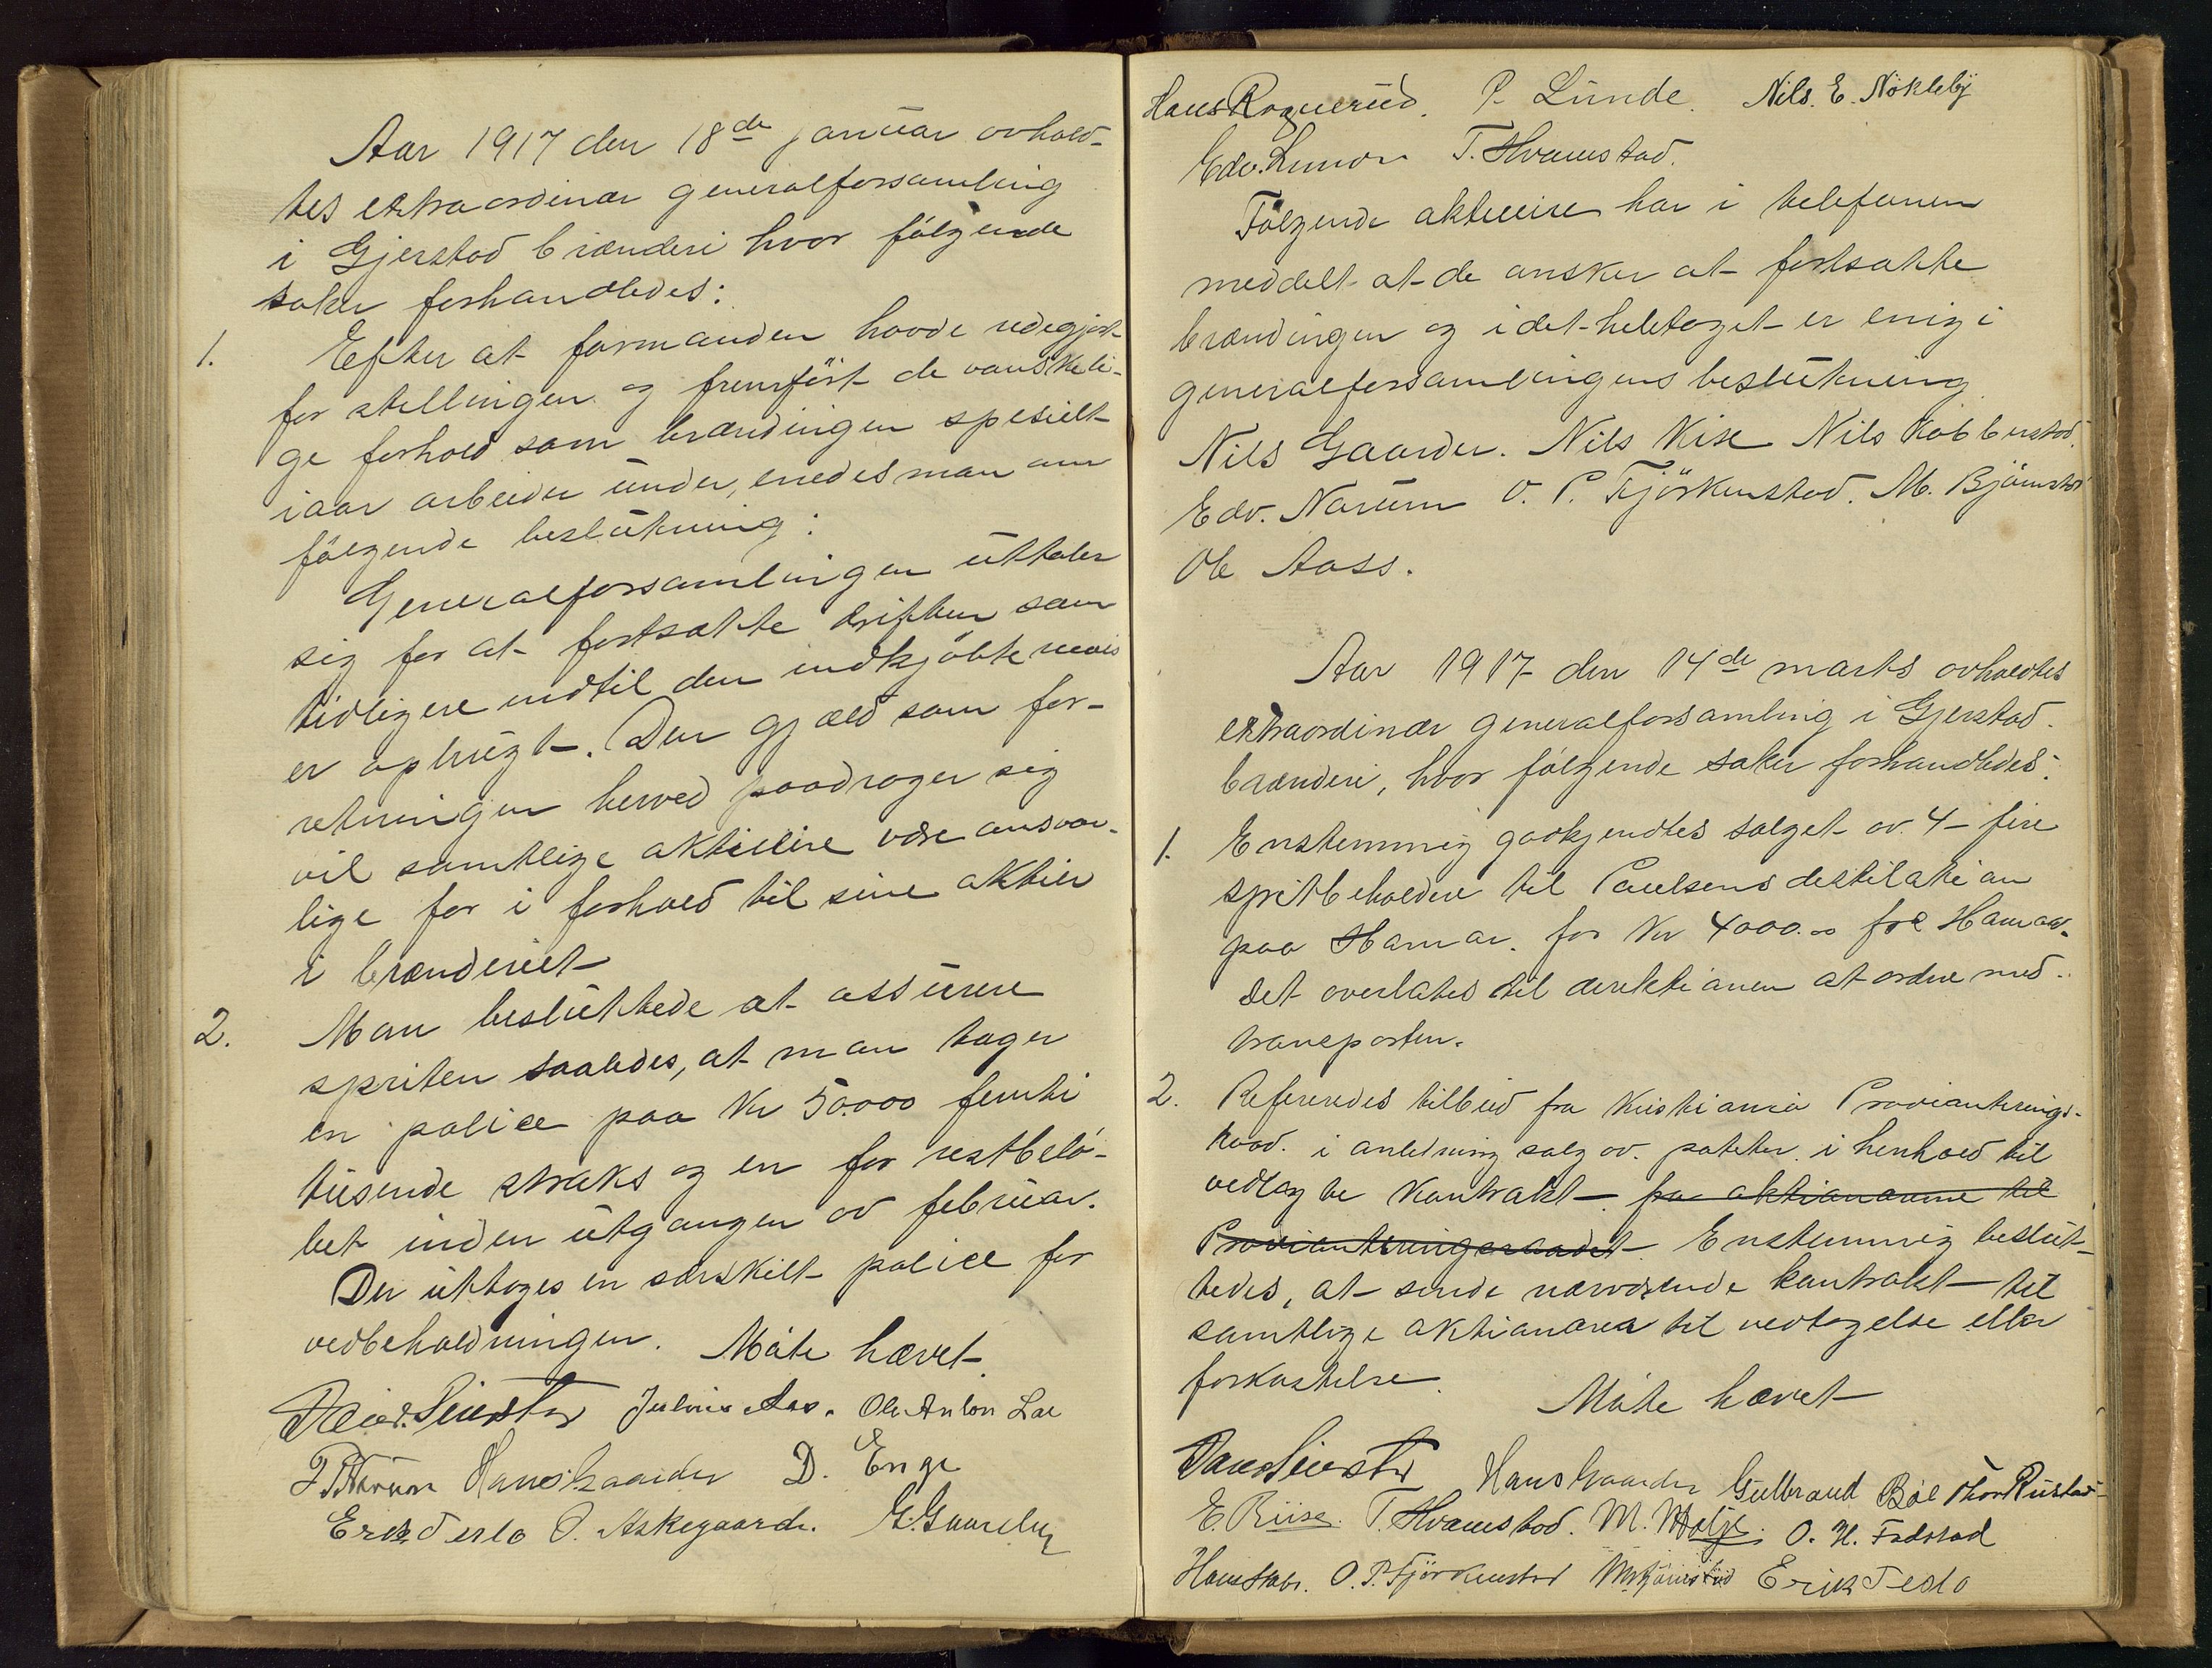 Aar 1917 den 18de januar avhold-
tes extraordinær generalforsamling
i Gjerstad brænderi hvor følgende
saker forhandledes:
1. Efter at formanden havde redegjort
for stillingen og fremført de vanskeli-
ge forhold som brændingen spesielt
iaar arbeider under, enedes man om
følgende beslutning:
Generalforsamlingen uttaler
sig for at fortsætte driften som
tidligere indtil den indkjøbte mais
er opbrugt. Den gjæld som for-
retningen herved paadrager sig
vil samtlige aktieeire være ansvar-
lige for i forhold til sine aktier
i brænderiet
2. Man besluttede at assurere
spriten saaledes, at man tager
en police paa Kr 50.000 femti
tusende straks og en for restbelø-
bet inden utgangen av februar.
Der uttages en særskilt police for
vedbeholdningen. Møte hævet
Julius Aas. Ole Anton Lae
Hans Gaarder D. Enge
Erik Teslo O. Askegaard. G. Gaarder
Hans Rognerud. P. Lunde. Nils. E. Nökleby
Edv. T. Hvamstad.
Følgende aktieeire har i telefonen
meddelt at de ønsker at fortsætte
brændingen og i det heletaget er enig i
generalforsamlingens beslutning
Nils Gaarder. Nils Kise Nils Kobberstad.
Edv. Narum O. P. Fjörkenstad. M. Björnstad
Ole Aass.
Aar 1917 den 14de marts avholdtes
extraordinær generalforsamling i Gjerstad
brænderi, hvor følgende saker forhandledes:
1. Enstemmig godkjendtes salget av 4 - fire
spritbeholdere til Paulsens destilation
paa Hamar. for Kr 4000.00 fob Hamar.
Det overlates til direktionen at ordne med
transporten.
2. Refereredes tilbud fra Kristiania Provianterings-
raad. i anledning salg av. poteter. i henhold til
vedlagte kontrakt. fra aktionærerne til
Provianteringsraadet Enstemmig beslut-
tedes, at sende nærværende kontrakt til
samtlige aktionærer til vedtagelse eller
forkastelse.
Møte hævet
Hans Gaarder Gulbrand Böe Thor Rustad
E. Riise. T. Hvamstad. M. O. H. Fadstad
Hans O. P. Fjörkenstad M. Björnstad Erik Teslo